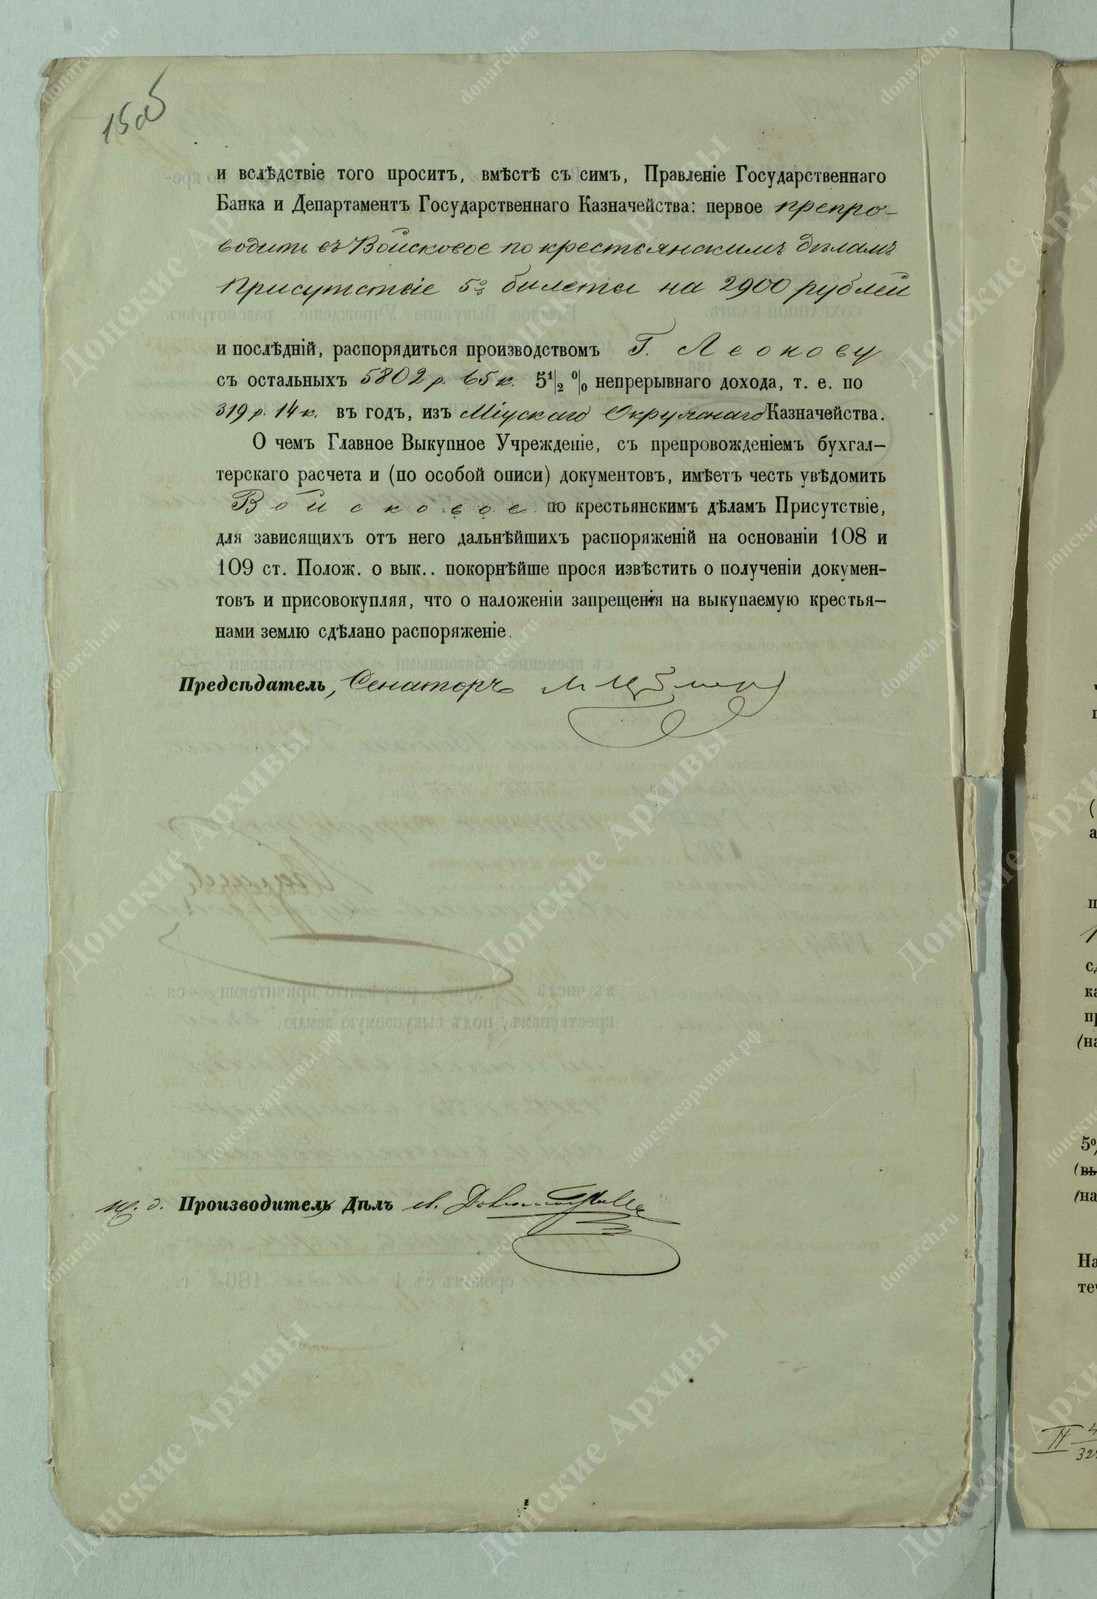 15об
и вслѣдствіе того проситъ, вмѣстѣ съ симъ, Правленіе Государственнаго
Банка и Департаментъ Государственнаго Казначейства: первое препро-
водить въ Войсковое по крестьянскимъ дѣламъ
Присутствіе 5% билеты на 2900 рублей
и послѣдній, распорядиться производствомъ Г. Леонову
съ остальныхъ 5802 р. 65 к. 5 1/2 % непрерывнаго дохода, т. е. по
319 р. 14 к. въ годъ, изъ Міускаго Окружнаго Казначейства.
О чемъ Главное Выкупное Учрежденіе, съ препровожденіемъ бухгал-
терскаго расчета и (по особой описи) документовъ, имѣетъ честь увѣдомить
Войсковое по крестьянскимъ дѣламъ Присутствіе,
для зависящихъ отъ него дальнѣйшихъ распоряженій на основаніи 108 и
109 ст. Полож. о вык.. покорнѣйше прося извѣстить о полученіи докумен-
товъ и присовокупляя, что о наложеніи запрещенія на выкупаемую крестья-
нами землю сдѣлано распоряженіе.
Предсѣдатель, Сенаторъ
И. д. Производителя Дѣлъ